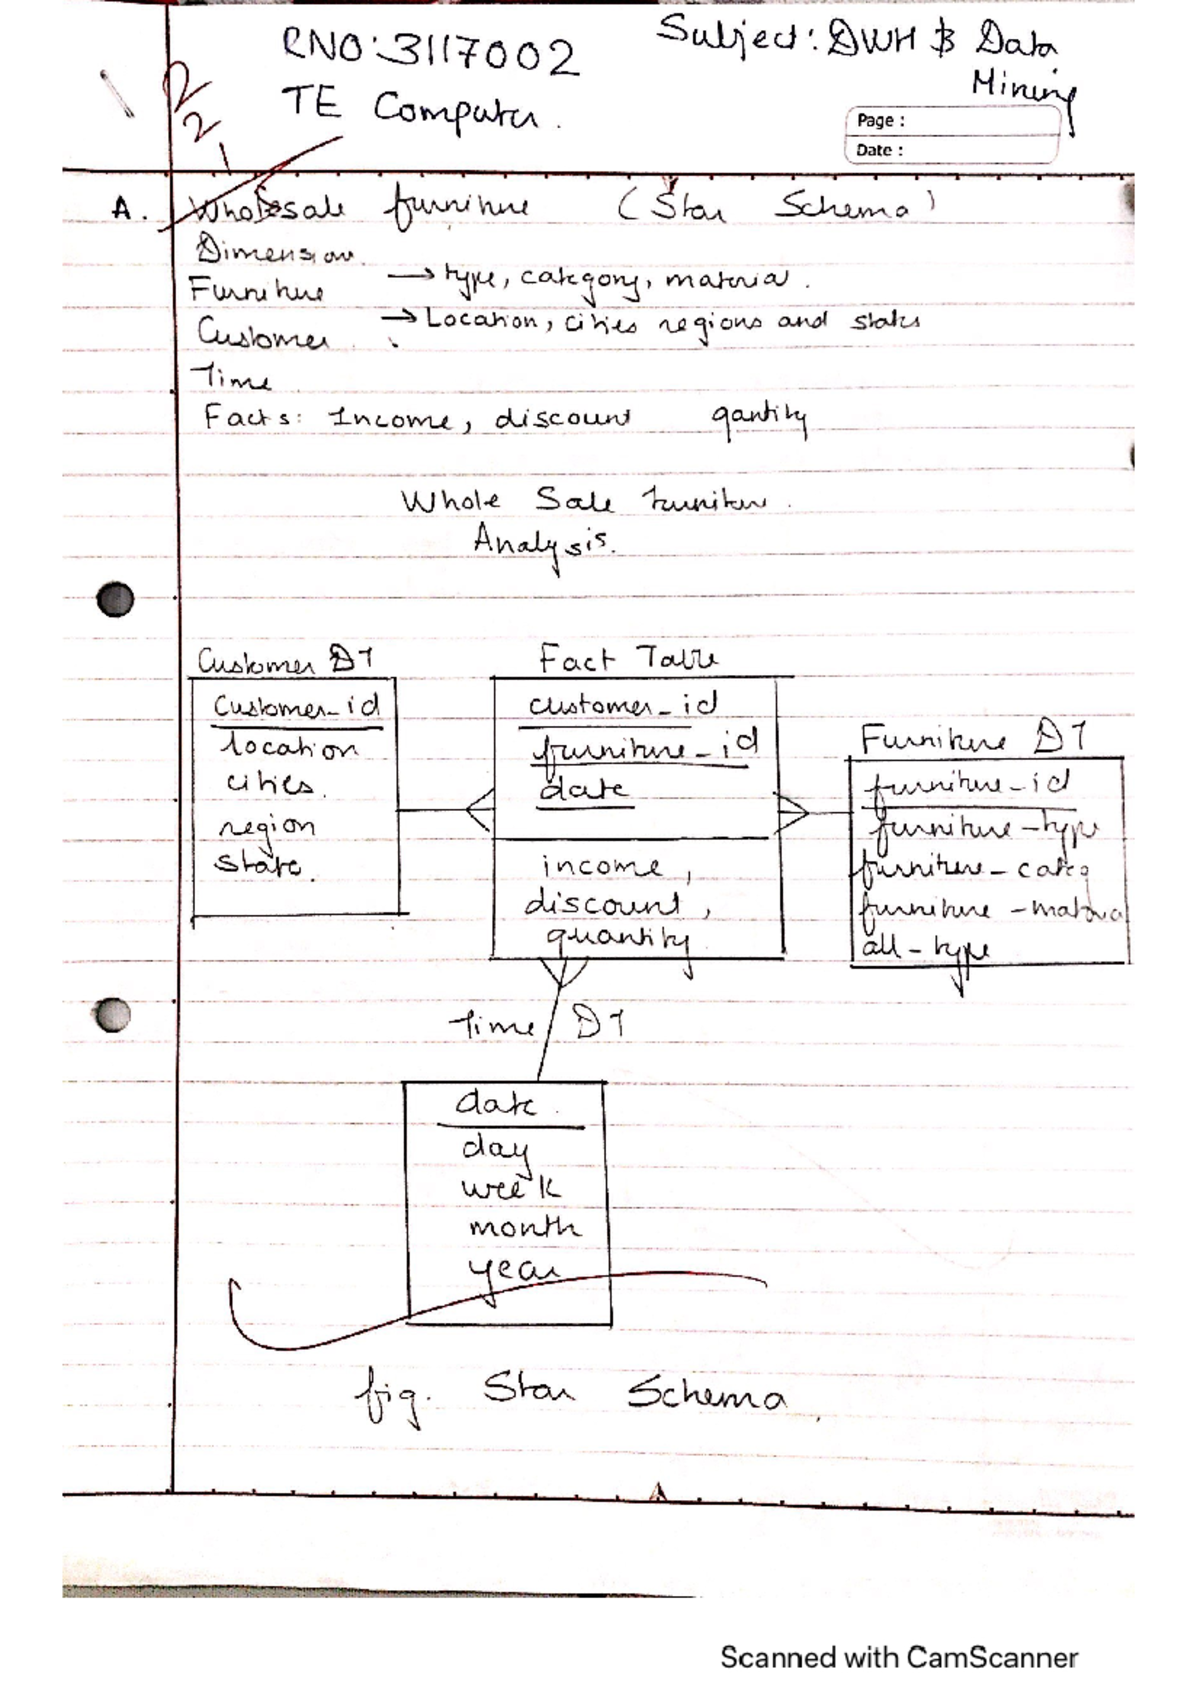 RNO:3117002
Subject: DWH & Data
Mining
TE Computer.
Page :
Date :
A. Wholesale furniture (Star Schema)
Dimension.
Furniture → type, category, material.
Customer → Location, cities regions and states
Time
Facts: Income, discount qantity
Whole Sale furniture.
Analysis.
Customer DT
Customer_id
location
cities.
region
state.
Fact Table
customer_id
furniture_id
date
income,
discount,
quantity
Furniture DT
furniture_id
furniture-type
furniture-categ
furniture-material
all-type
Time DT
date.
day
week
month
year
fig. Star Schema
Scanned with CamScanner